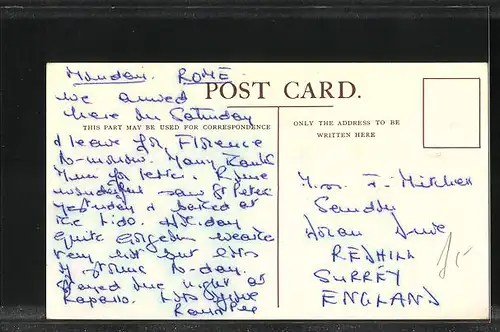 Monday. ROME
POST CARD.
We arrived
here on Saturday
THIS PART MAY BE USED FOR CORRESPONDENCE
& leave for Florence
to-morrow. Many thanks
Mum for letter. Rome
wonderful saw St Peters
yesterday & bathed at
the Lido. Holiday
quite gorgeous weather
very hot but lots
of to-day.
Stayed one night at
Rapallo. Lots love
ONLY THE ADDRESS TO BE
WRITTEN HERE
F. Mitchell
Sandy
Drive
REDHILL
SURREY
ENGLAND